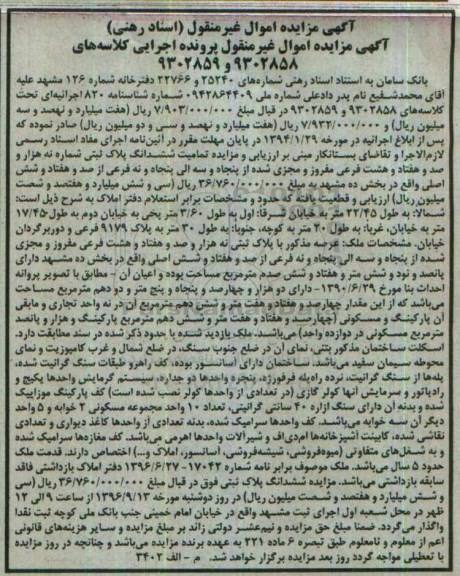 آگهی مزایده اموال غیرمنقول (اسناد رهنی)
آگهی مزایده اموال غیرمنقول پرونده اجرایی کلاسه‌های
۹۳۰۲۸۵۸ و ۹۳۰۲۸۵۹
بانک سامان به استناد اسناد رهنی شماره‌های ۲۵۲۴۰ و ۲۲۷۶۶ دفترخانه شماره ۱۲۶ مشهد علیه
آقای محمدشفیع نام پدر دادعلی شماره ملی ۰۹۴۲۸۶۴۴۰۹ شماره شناسنامه ۸۲۰ اجرائیه‌ای تحت
کلاسه‌های ۹۳۰۲۸۵۸ و ۹۳۰۲۸۵۹ در قبال مبلغ ۷/۹۰۳/۰۰۰/۰۰۰ ریال (هفت میلیارد و نهصد و سه
میلیون ریال) و ۷/۹۳۲/۰۰۰/۰۰۰ ریال (هفت میلیارد و نهصد و سی و دو میلیون ریال) صادر نموده که
پس از ابلاغ اجرائیه در مورخه ۱۳۹۴/۱/۲۹ در پایان مهلت مقرر در آئین‌نامه اجرای مفاد اسناد رسمی
لازم‌الاجرا و تقاضای بستانکار مبنی بر ارزیابی و مزایده تمامیت ششدانگ پلاک ثبتی شماره نه هزار و
صد و هفتاد و هشت فرعی مفروز و مجزی شده از پنجاه و سه الی پنجاه و نه فرعی از صد و هفتاد و شش
اصلی واقع در بخش ده مشهد به مبلغ ۳۶/۷۶۰/۰۰۰/۰۰۰ ریال (سی و شش میلیارد و هفتصد و شصت
میلیون ریال) ارزیابی و قطعیت یافته که حدود و مشخصات برابر استعلام دفتر املاک به شرح ذیل است:
شمالا: به طول ۲۲/۴۵ متر به خیابان شرقا: اول به طول ۳/۶۰ متر پخی به خیابان دوم به طول ۱۷/۴۵
متر به خیابان، غربا: به طول ۲۰ متر به کوچه، جنوبا: به طول ۳۰ متر به پلاک ۹۱۷۹ فرعی و دوربرگردان
خیابان. مشخصات ملک: عرصه مذکور با پلاک ثبتی نه هزار و صد و هفتاد و هشت فرعی مفروز و مجزی
شده از پنجاه و سه الی پنجاه و نه فرعی از صد و هفتاد و شش اصلی واقع در بخش ده مشهد دارای
پانصد و نود و شش متر و هفتاد و شش صدم مترمربع مساحت بوده و اعیان آن - مطابق با تصویر پروانه
احداث بنا مورخ ۱۳۹۰/۶/۲۹- دارای دو هزار و چهارصد و پنجاه و پنج متر و دو دهم مترمربع مساحت
می‌باشد که از این مقدار چهارصد و هفتاد و هفت متر و شش دهم مترمربع آن در نه واحد تجاری و مابقی
آن پارکینگ و مسکونی (چهارصد و هفتاد و هفت متر و شش دهم مترمربع پارکینگ و هزار و پانصد
مترمربع مسکونی در دوازده واحد) می‌باشند. ملک بازدید شده با حدود ذکر شده در سند مطابقت دارد.
اسکلت ساختمان مذکور بتنی، نمای آن در ضلع جنوب سنگ، در ضلع شمال و غرب کامپوزیت و نمای
محوطه سیمان سفید می‌باشد. ساختمان دارای آسانسور بوده، کف راهرو طبقات سنگ گرانیت شده،
پله‌ها از سنگ گرانیت، نرده راه‌پله فرفورژه، پنجره واحدها دو جداره، سیستم گرمایش واحدها پکیج و
رادیاتور و سرمایش آنها کولر گازی (در تعدادی از واحدها کولر نصب شده است) کف پارکینگ موزاییک
شده و بدنه آن دارای سنگ ازاره ۴۰ سانتی گرانیتی، تعداد ۱۰ واحد مجموعه مسکونی ۲ خوابه و ۵ واحد
دیگر آن سه خوابه می‌باشد. کف واحدها سرامیک شده، بدنه تعدادی از واحدها کاغذ دیواری و تعدادی
نقاشی شده، کابینت آشپزخانه‌ها ام‌دی‌اف و شیرآلات واحدها اهرمی می‌باشد. کف مغازه‌ها سرامیک شده
و به شغل‌های متفاوتی (میوه‌فروشی، شیشه‌فروشی، آسانسور، املاک و...) اختصاص دارند. قدمت ملک
حدود ۵ سال می‌باشد. ملک موصوف برابر نامه شماره ۱۷۰۴۲- ۱۳۹۶/۶/۲۷ دفتر املاک بازداشتی فاقد
سابقه بازداشتی می‌باشد. مزایده ششدانگ پلاک ثبتی فوق در قبال مبلغ ۳۶/۷۶۰/۰۰۰/۰۰۰ ریال (سی
و شش میلیارد و هفتصد و شصت میلیون ریال) در روز دوشنبه مورخه ۱۳۹۶/۹/۱۳ از ساعت ۹ الی ۱۲
ظهر در محل شعبه اول اجرای ثبت مشهد واقع در خیابان امام خمینی جنب بانک ملی کوچه ثبت نقدا
واگذار می‌گردد. ضمنا مبلغ حق مزایده و نیم‌عشر دولتی زائد بر مبلغ مزایده و سایر هزینه‌های قانونی
اعم از معلوم و نامعلوم طبق تبصره ۶ ماده ۲۲۱ به عهده برنده مزایده می‌باشد و چنانچه در روز مزایده
با تعطیلی مواجه گردد روز بعد مزایده برگزار خواهد شد. م - الف ۳۴۰۲